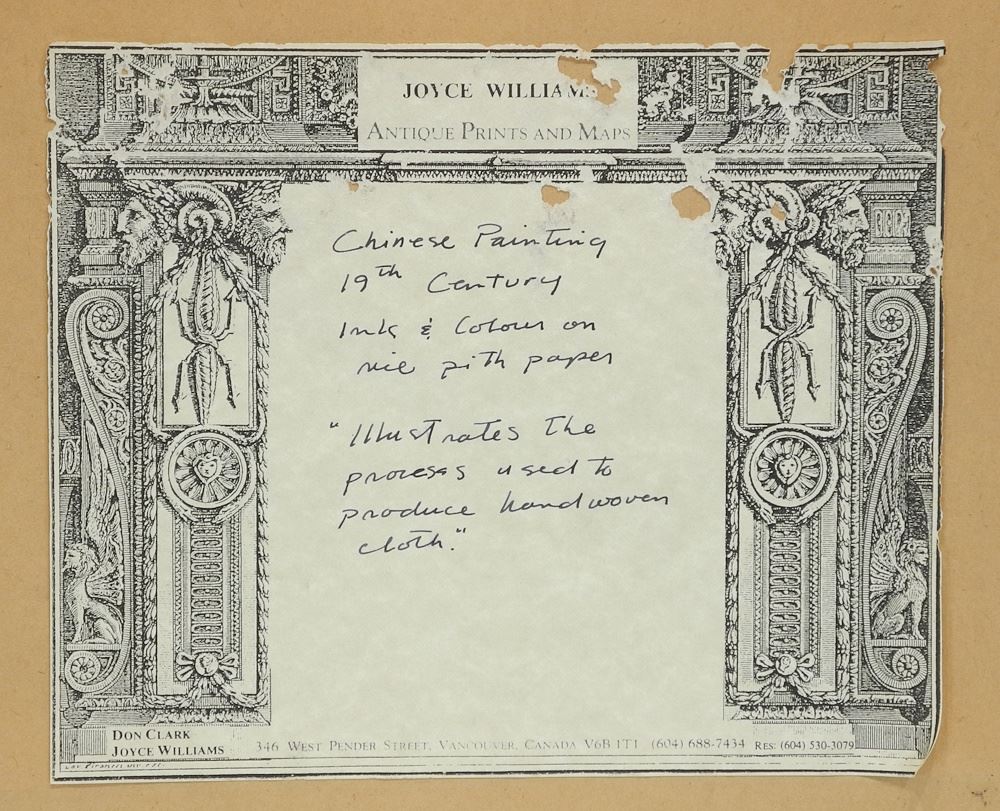 JOYCE WILLIAMS
ANTIQUE PRINTS AND MAPS
Chinese Painting
19th Century
Ink & Colour on
rice pith paper
"Illustrates the
process used to
produce handwoven
cloth."
DON CLARK
JOYCE WILLIAMS
346 WEST PENDER STREET, VANCOUVER, CANADA V6B 1T1 (604) 688-7434 RES: (604) 530-3079